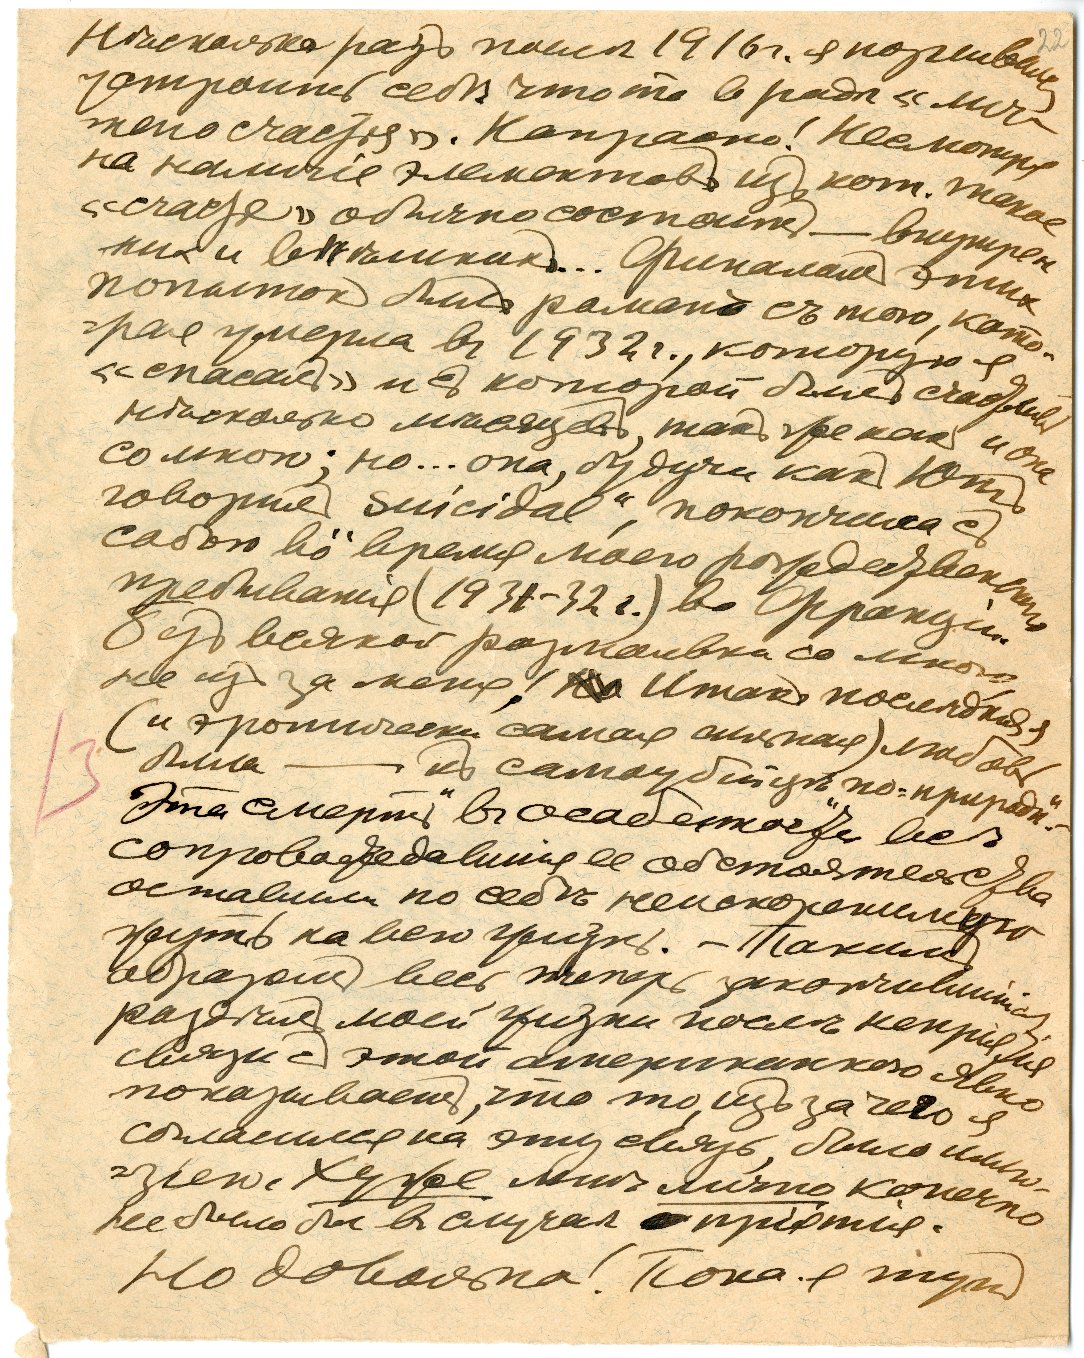 22
Нѣсколько разъ послѣ 1916 г. я порывался
устроить себѣ что то в родѣ «лич-
наго счастья». Напрасно! Несмотря
на наличіе элементовъ изъ кот. такое
«счастье» обычно состоитъ — внутрен
них и внѣшнихъ... Финаломъ этих
попытокъ былъ романъ съ тою, кото-
рая умерла въ 1932 г., которую я
«спасалъ» и съ которой былъ счастливъ
нѣсколько мѣсяцевъ, такъ же какъ и она
со мною; но... она, будучи какъ Юнгъ
говорилъ „suicidal“, покончила съ
собою во время моего рождественскаго
пребыванія (1931-32 г.) во Франціи.
Безъ всякой размолвки со мною,
не из за меня! Итакъ послѣдняя
(и эротически самая сильная) любовь
была — къ самоубійцѣ „по-природѣ“.
Эта смерть въ особенности всѣ
сопровождавшія ее обстоятельства
оставили по себѣ неискоренимую
жуть на всю жизнь. — Такимъ
образомъ весь теперь закончившійся
раздѣлъ моей жизни послѣ непринятія
связи съ этой американкою явно
показываетъ, что то, изъ за чего я
согласился на эту связь, было иллю-
зіею. Хуже мнѣ лично конечно
не было бы въ случаѣ пріятія.
Но довольно! Пока я тутъ
13